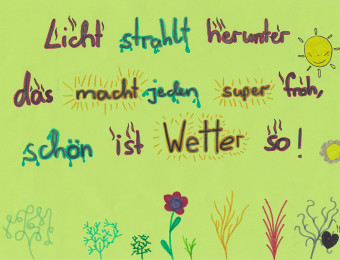 Licht strahlt herunter
das macht jeden super froh,
schön ist Wetter so!